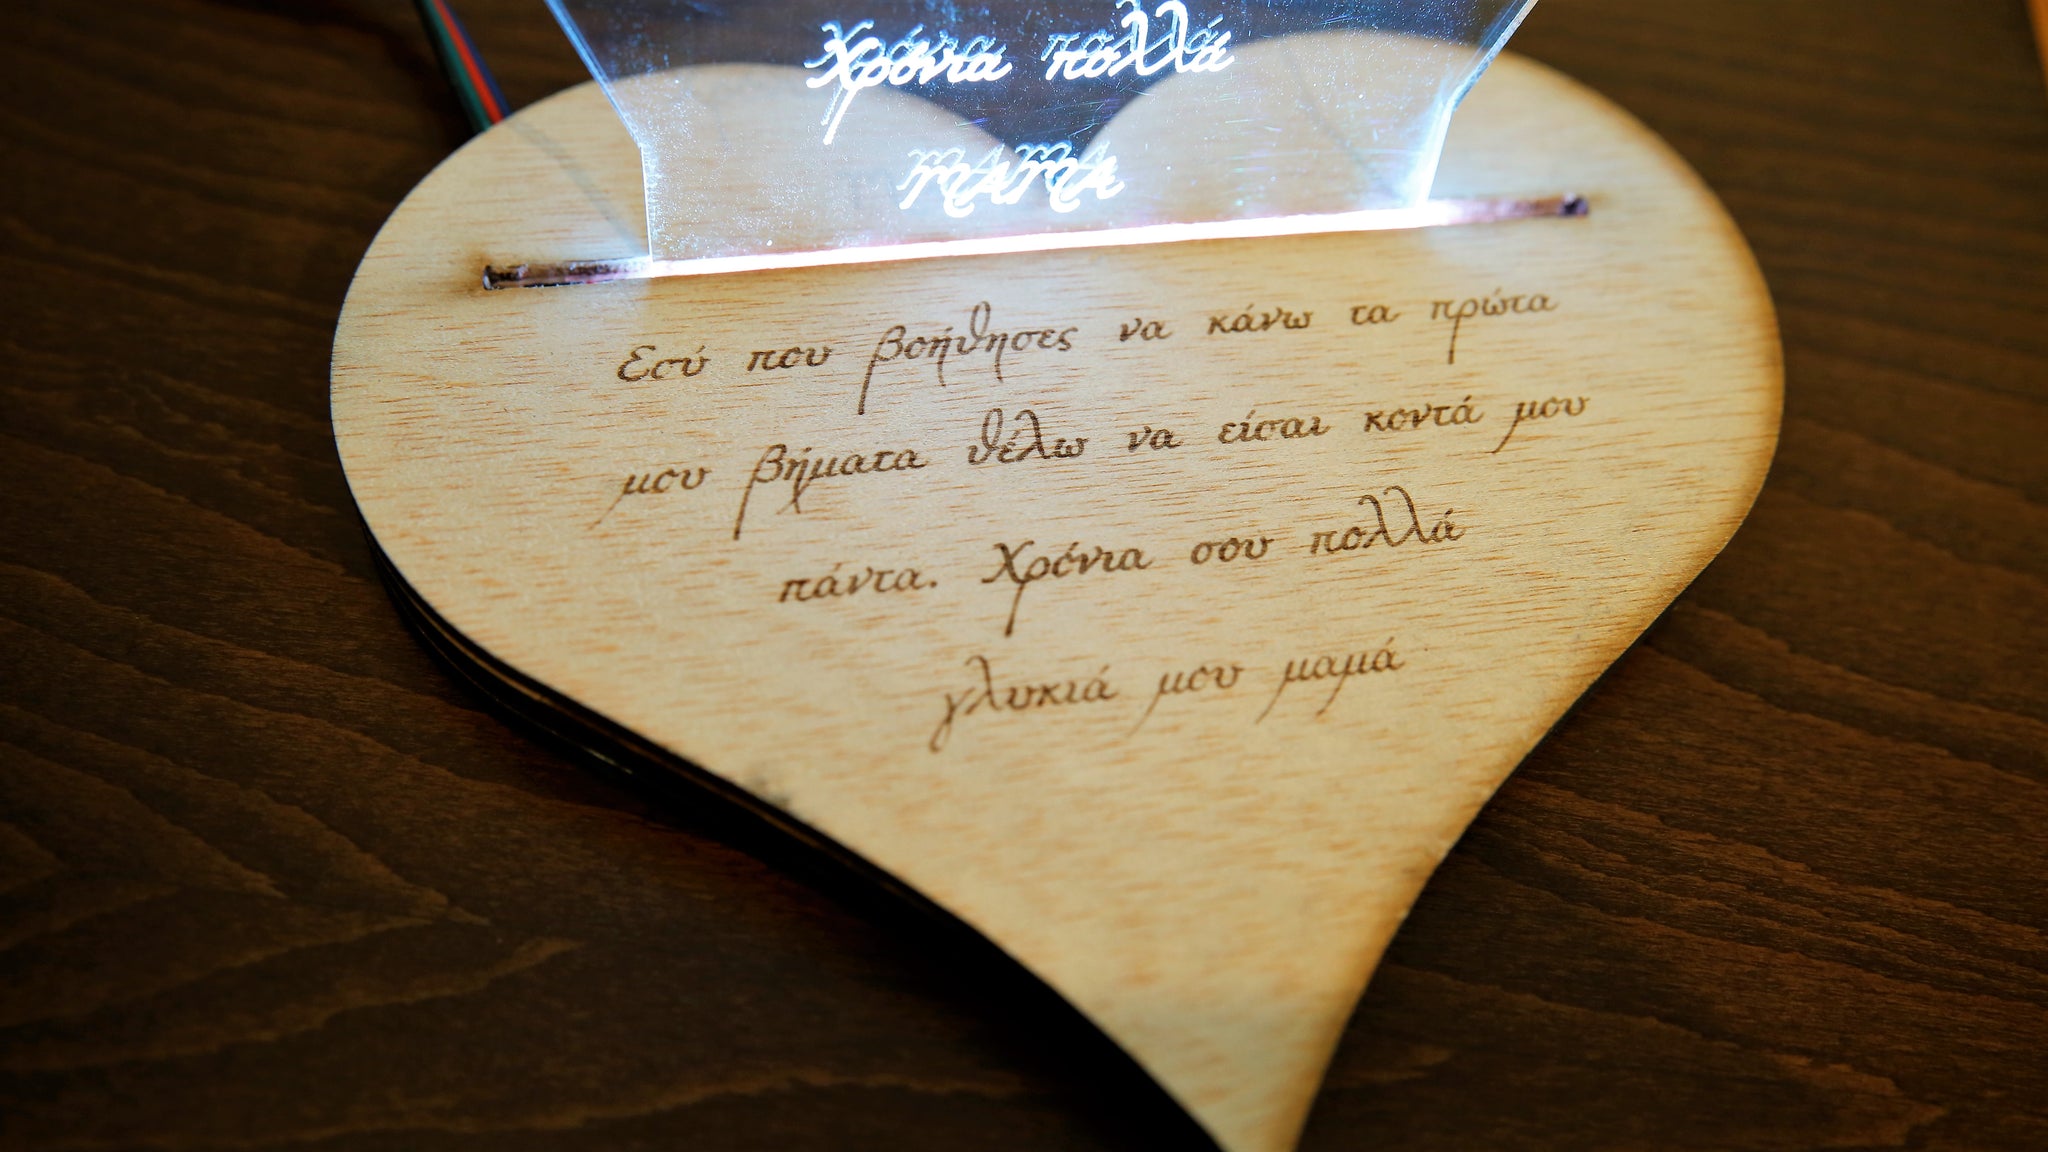 Χρόνια πολλά
ΜΑΜΑ
Εσύ που βοήθησες να κάνω τα πρώτα
μου βήματα θέλω να είσαι κοντά μου
πάντα. Χρόνια σου πολλά
γλυκιά μου μαμά